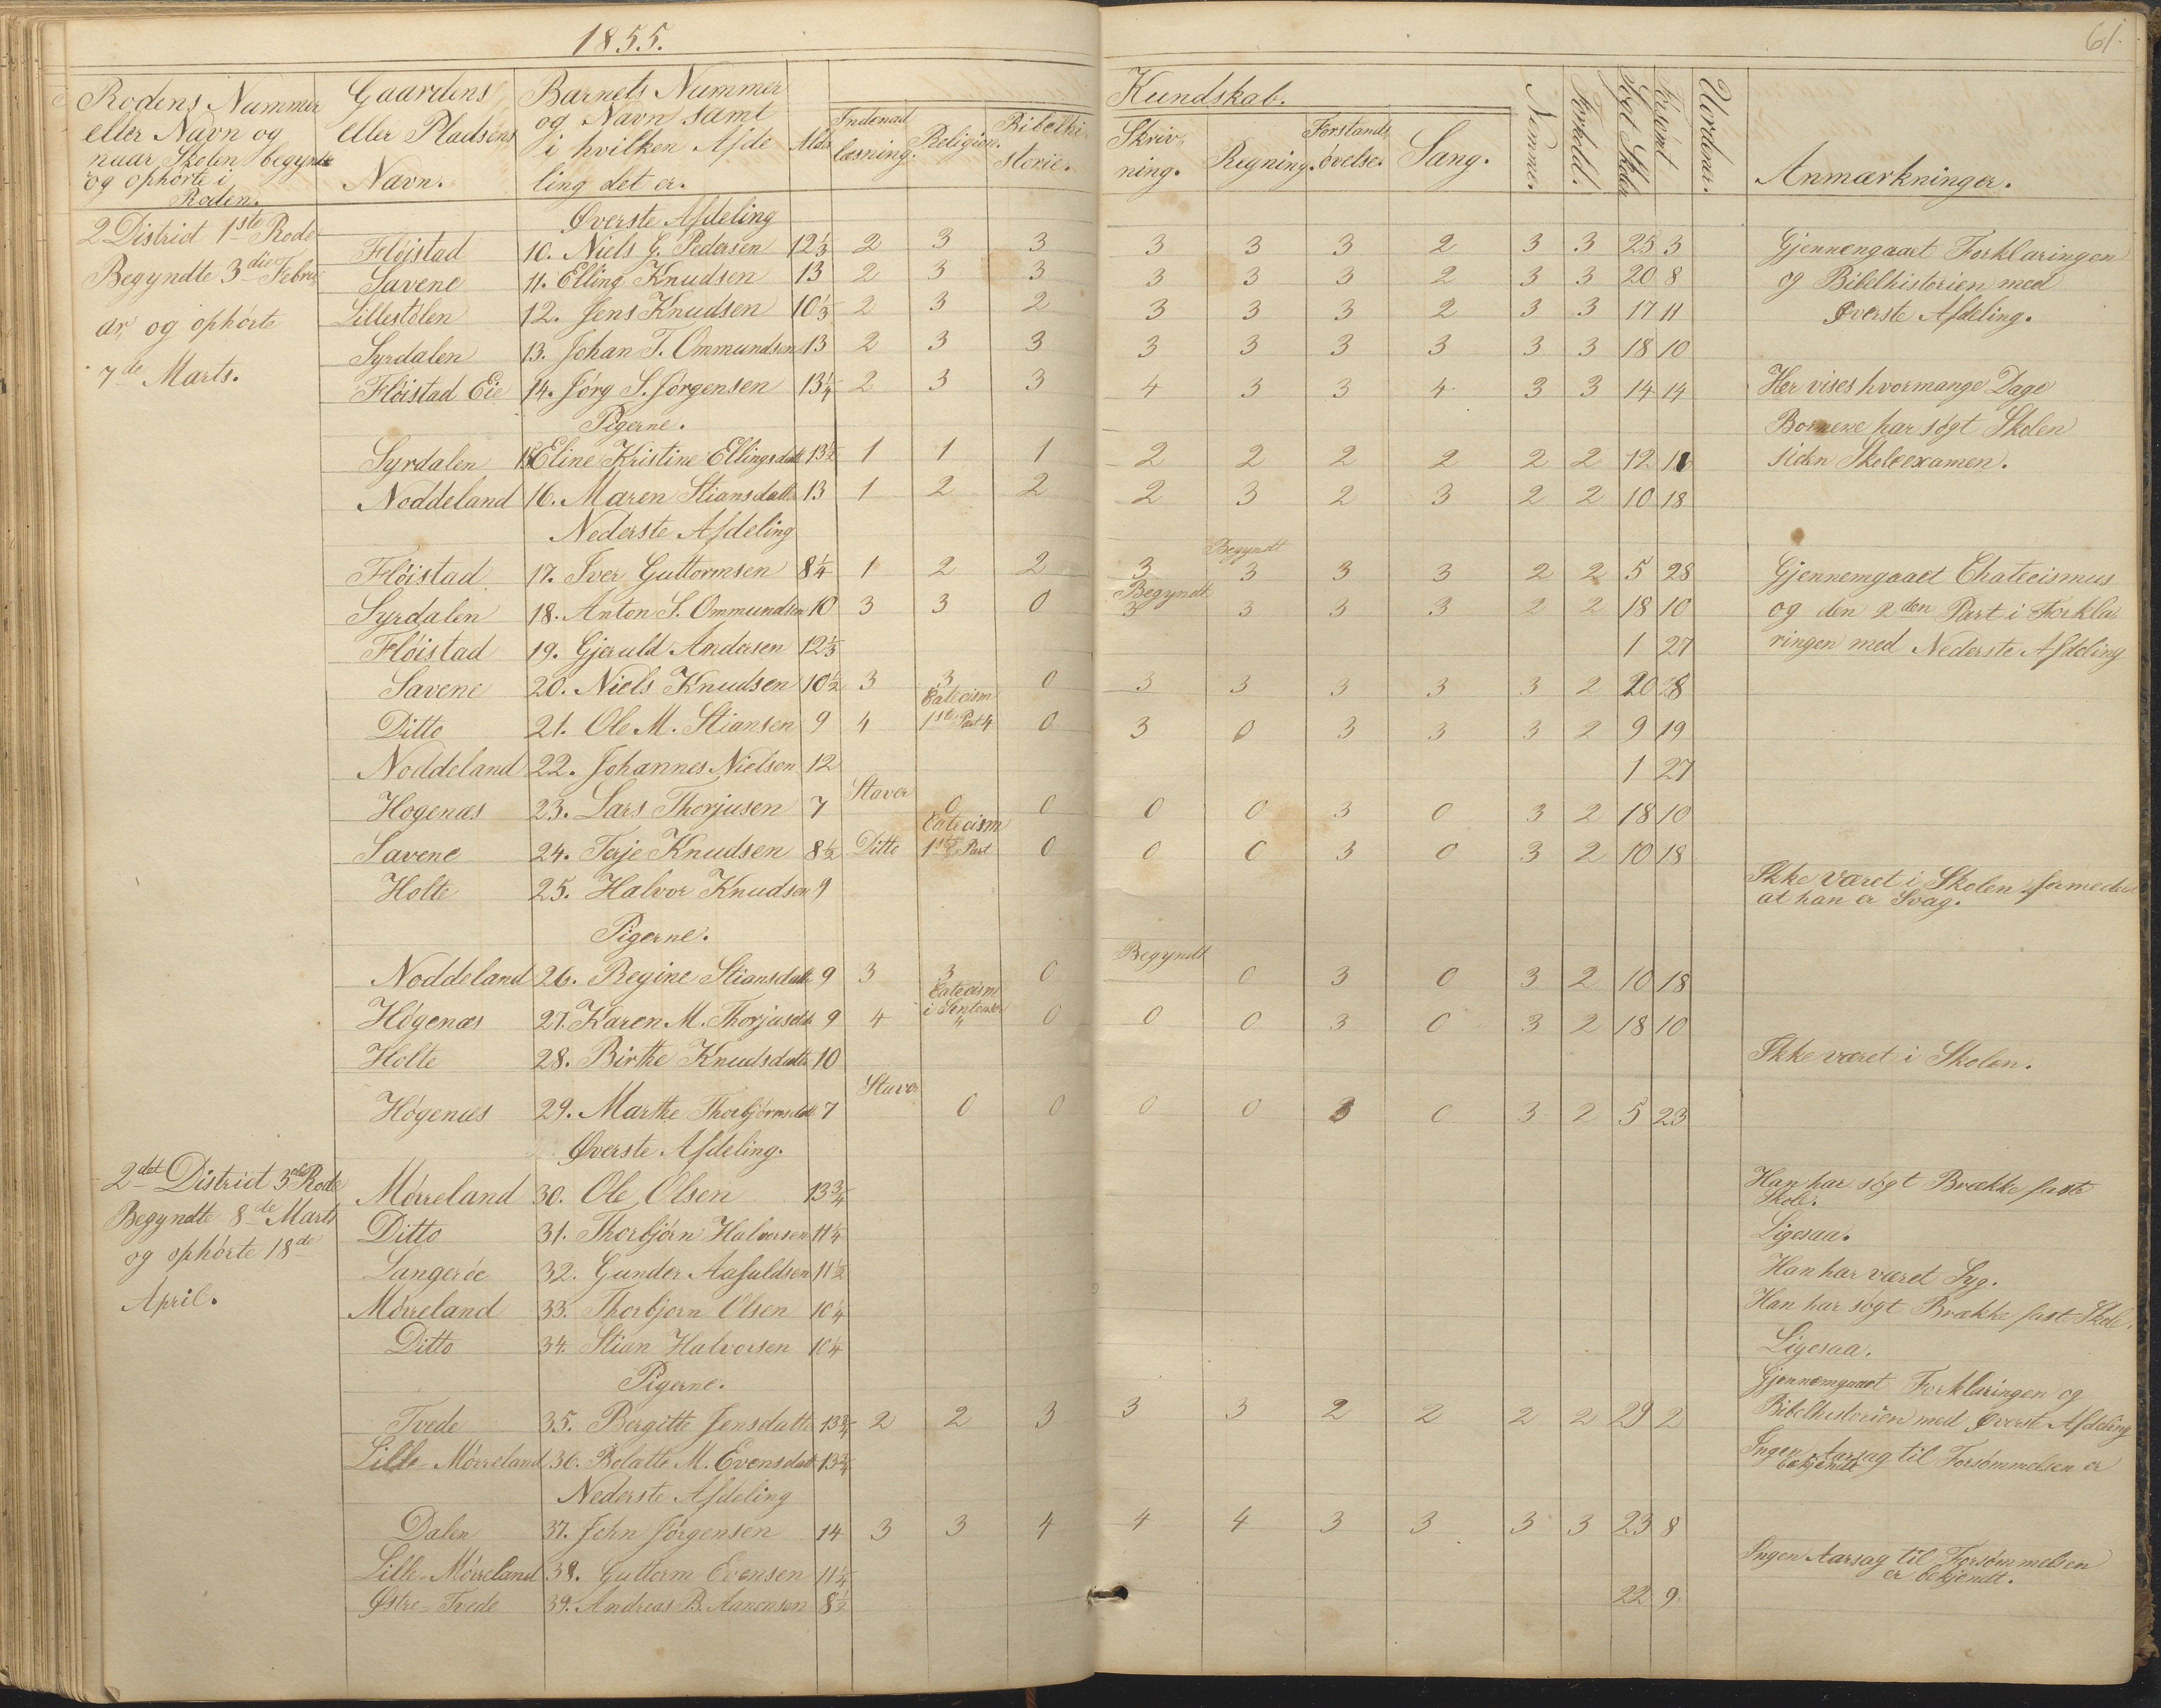 1855.
61.
Rodens Nummer eller Navn og naar Skolen begyndte og ophørte i Roden.
Gaardens eller Pladsens Navn.
Barnets Nummer og Navn samt i hvilken Afdeling det er.
Indenadlæsning. Religion. Bibelhistorie.
Kundskab.
Skrivning. Regning. Forstandsøvelse. Sang.
Nemme. Forhold. Søgt Skolen Forsømt Uordener.
Anmærkninger.
2 District 1ste Rode
Begyndte 3die Febru
ar, og ophørte
7de Marts.
Øverste Afdeling
Fløjstad 10. Niels G. Pedersen 12⅓ 2 3 3 3 3 3 2 3 3 25 3 Gjennemgaaet Forklaringen
Savene 11. Elling Knudsen 13 2 3 3 3 3 3 2 3 3 20 8 og Bibelhistorien med
Lillestølen 12. Jens Knudsen 10⅓ 2 3 2 3 3 3 2 3 3 17 11 Øverste Afdeling.
Syrdalen 13. Johan T. Ommundsen 13 2 3 3 3 3 3 3 3 3 18 10
Fløistad Eie 14. Jörg S. Jörgensen 13¼ 2 3 3 4 3 3 4 3 3 14 14 Her vises hvormange Dage
Pigerne. Børnene har søgt Skolen
Syrdalen 15 Eline Kristine Ellingsdatt 13½ 1 1 1 2 2 2 2 2 2 12 siden Skoleexamen.
Noddeland 16. Maren Stiansdatt 13 1 2 2 2 3 2 3 2 2 10 18
Nederste Afdeling
Begyndt
Fløistad 17. Iver Guttormsen 8¼ 1 2 2 3 3 3 3 2 2 5 28 Gjennemgaaet Chatecismus
Begyndt
Syrdalen 18. Anton S. Ommundsen 10 3 3 0 3 3 3 3 2 2 18 10 og den 2den Part i Forkla
Fløistad 19. Gjeruld Andersen 12⅓ 1 27 ringen med Nederste Afdeling
Savene 20. Niels Knudsen 10½ 3 3 0 3 3 3 3 3 2 20 8
Ditto 21. Ole M. Stiansen 9 4 Catecism 1ste Part 4 0 3 0 3 3 3 2 9 19
Noddeland 22. Johannes Nielsen 12 1 27
Hogenæs 23. Lars Thorjusen 7 Staver 0 0 0 0 3 0 3 2 18 10
Savene 24. Terje Knudsen 8½ Ditto Catecism 1ste Part 0 0 0 3 0 3 2 10 18
Holte 25. Halvor Knudsen 9 Ikke været i Skolen formedelst
at han er Svag.
Pigerne.
Noddeland 26. Regine Stiansdatt 9 3 3 0 Begyndt 0 3 0 3 2 10 18
Høgenæs 27. Karen M. Thorjusdatt 9 4 Catecism i Sentenser 4 0 0 0 3 0 3 2 18 10
Holte 28. Birthe Knudsdatter 10 Ikke været i Skolen.
Høgenæs 29. Marthe Thorbjørnsdatt 7 Staver 0 0 0 0 3 0 3 2 5 23
Øverste Afdeling.
2det District 3die Rode
Begyndte 8de Marts
og ophørte 18de
April.
Mørreland 30. Ole Olsen 13¾ Han har søgt Brække faste
Skole.
Ditto 31. Thorbjørn Halvorsen 11¼ Ligesaa.
Langerøe 32. Gunder Aasuldsen 11½ Han har været Syg.
Mørreland 33. Thorbjørn Olsen 10¼ Han har søgt Brække faste Skole.
Ditto 34. Stian Halvorsen 10¼ Ligesaa.
Pigerne. Gjennemgaaet Forklaringen og
Tvede 35. Bergitte Jensdatte 13¾ 2 2 3 3 3 2 2 2 2 29 2 Bibelhistorien med Øverste Afdeling
Lille-Mørreland 36. Belatte M. Evensdatt 13¾ Ingen Aarsag til Forsømmelsen er
bekjendt
Nederste Afdeling
Dalen 37. John Jörgensen 14 3 3 4 4 4 3 3 3 3 23 8
Lille-Mørreland 38. Guttorm Evensen 11¼ Ingen Aarsag til Forsømmelsen
er bekjendt.
Østre-Tvede 39. Andreas B. Aanensen 8½ 22 9